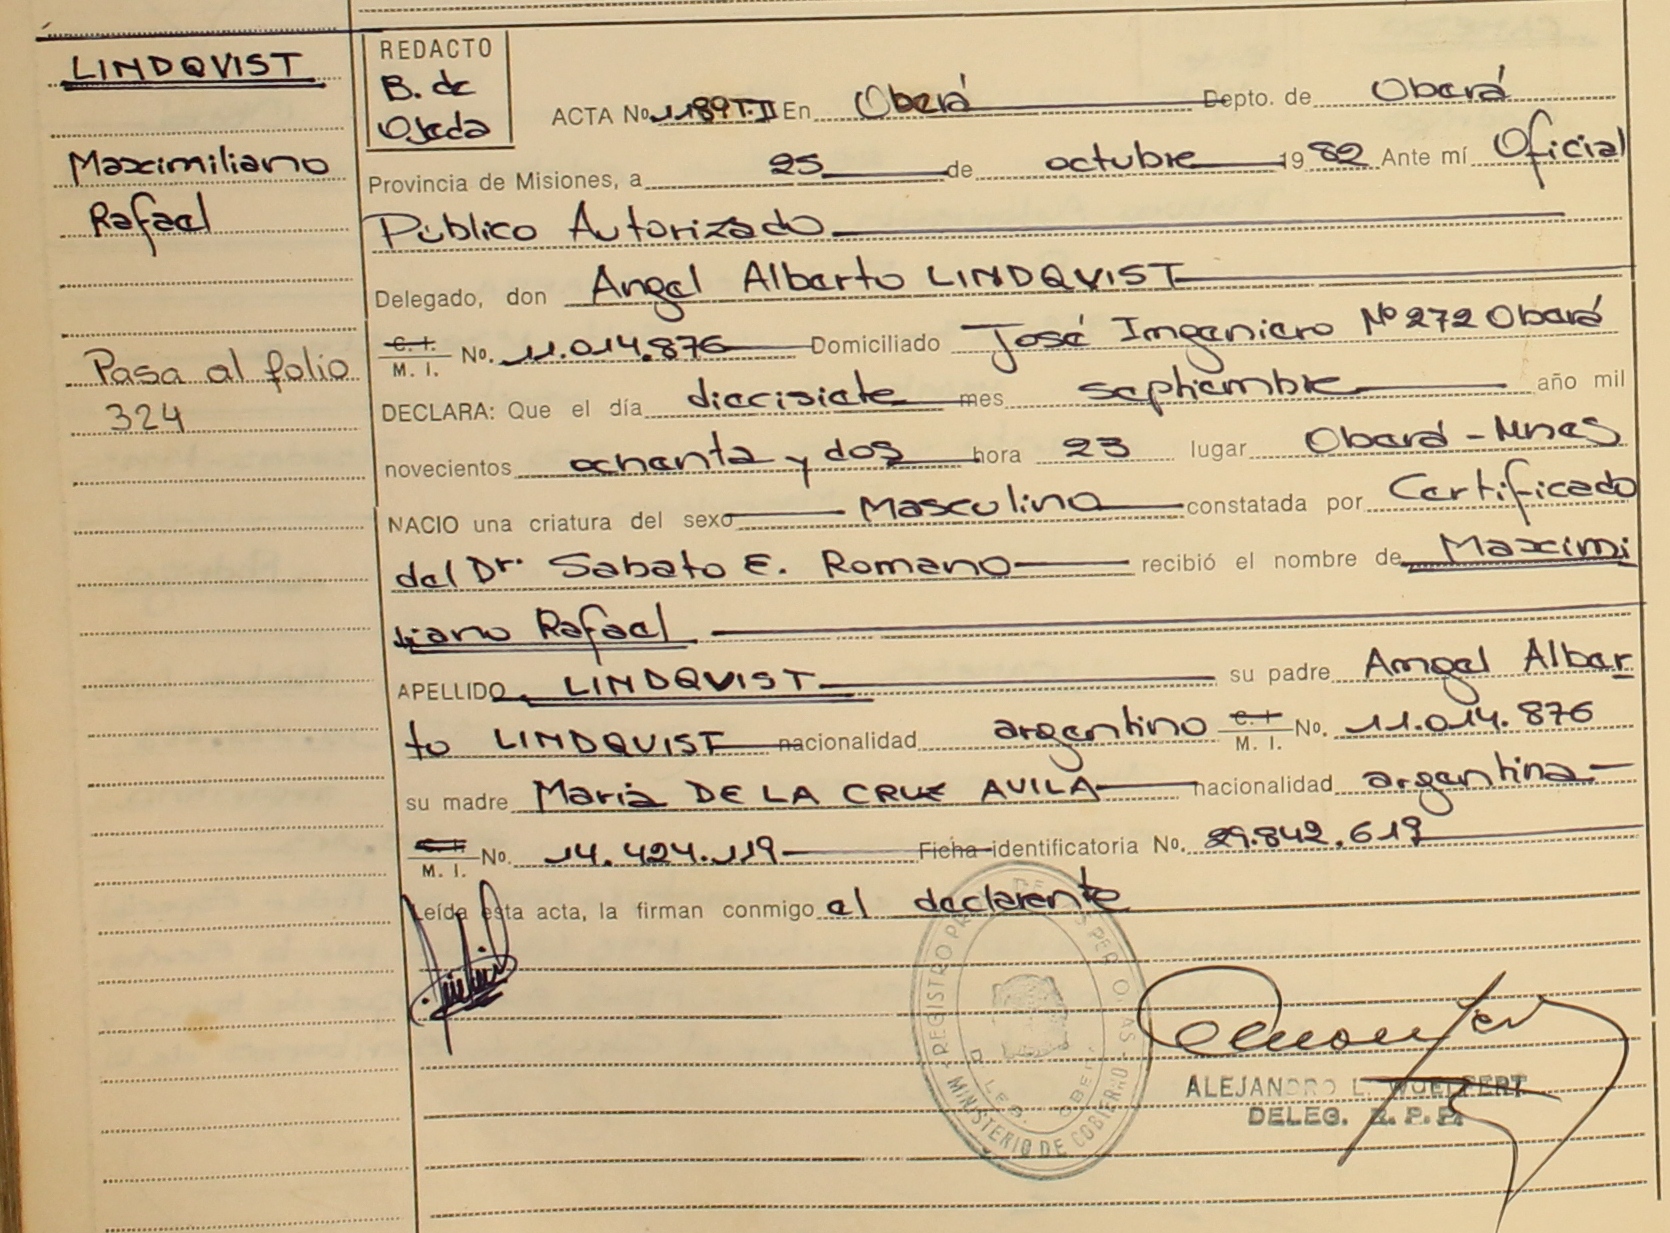 LINDQVIST
Maximiliano
Rafael
Pasa al folio
324
REDACTO
B. de
Ojeda
ACTA No. 1189 T. II En Oberá Depto. de Oberá
Provincia de Misiones, a 25 de octubre 1982 Ante mí Oficial
Público Autorizado
Delegado, don Angel Alberto LINDQVIST
C. I. M. I. No. 11.014.876 Domiciliado José Ingeniero Nº 272 Oberá
DECLARA: Que el día diecisiete mes septiembre año mil
novecientos ochenta y dos hora 23 lugar Oberá - Mnes
NACIO una criatura del sexo Masculino constatada por Certificado
del Dr. Sabato E. Romano recibió el nombre de Maximi
liano Rafael
APELLIDO LINDQVIST su padre Angel Alber
to LINDQUIST nacionalidad argentino C. I. M. I. No. 11.014.876
su madre Maria DE LA CRUZ AVILA nacionalidad argentina
C. I. M. I. No. 14.424.119 Ficha identificatoria No. 29.842.619
Leída esta acta, la firman conmigo el declarente
REGISTRO PROV. DE LAS PERSONAS
MINISTERIO DE GOBIERNO
DELEG. OBERA
ALEJANDRO L. WOELFERT
DELEG. R. P. P.